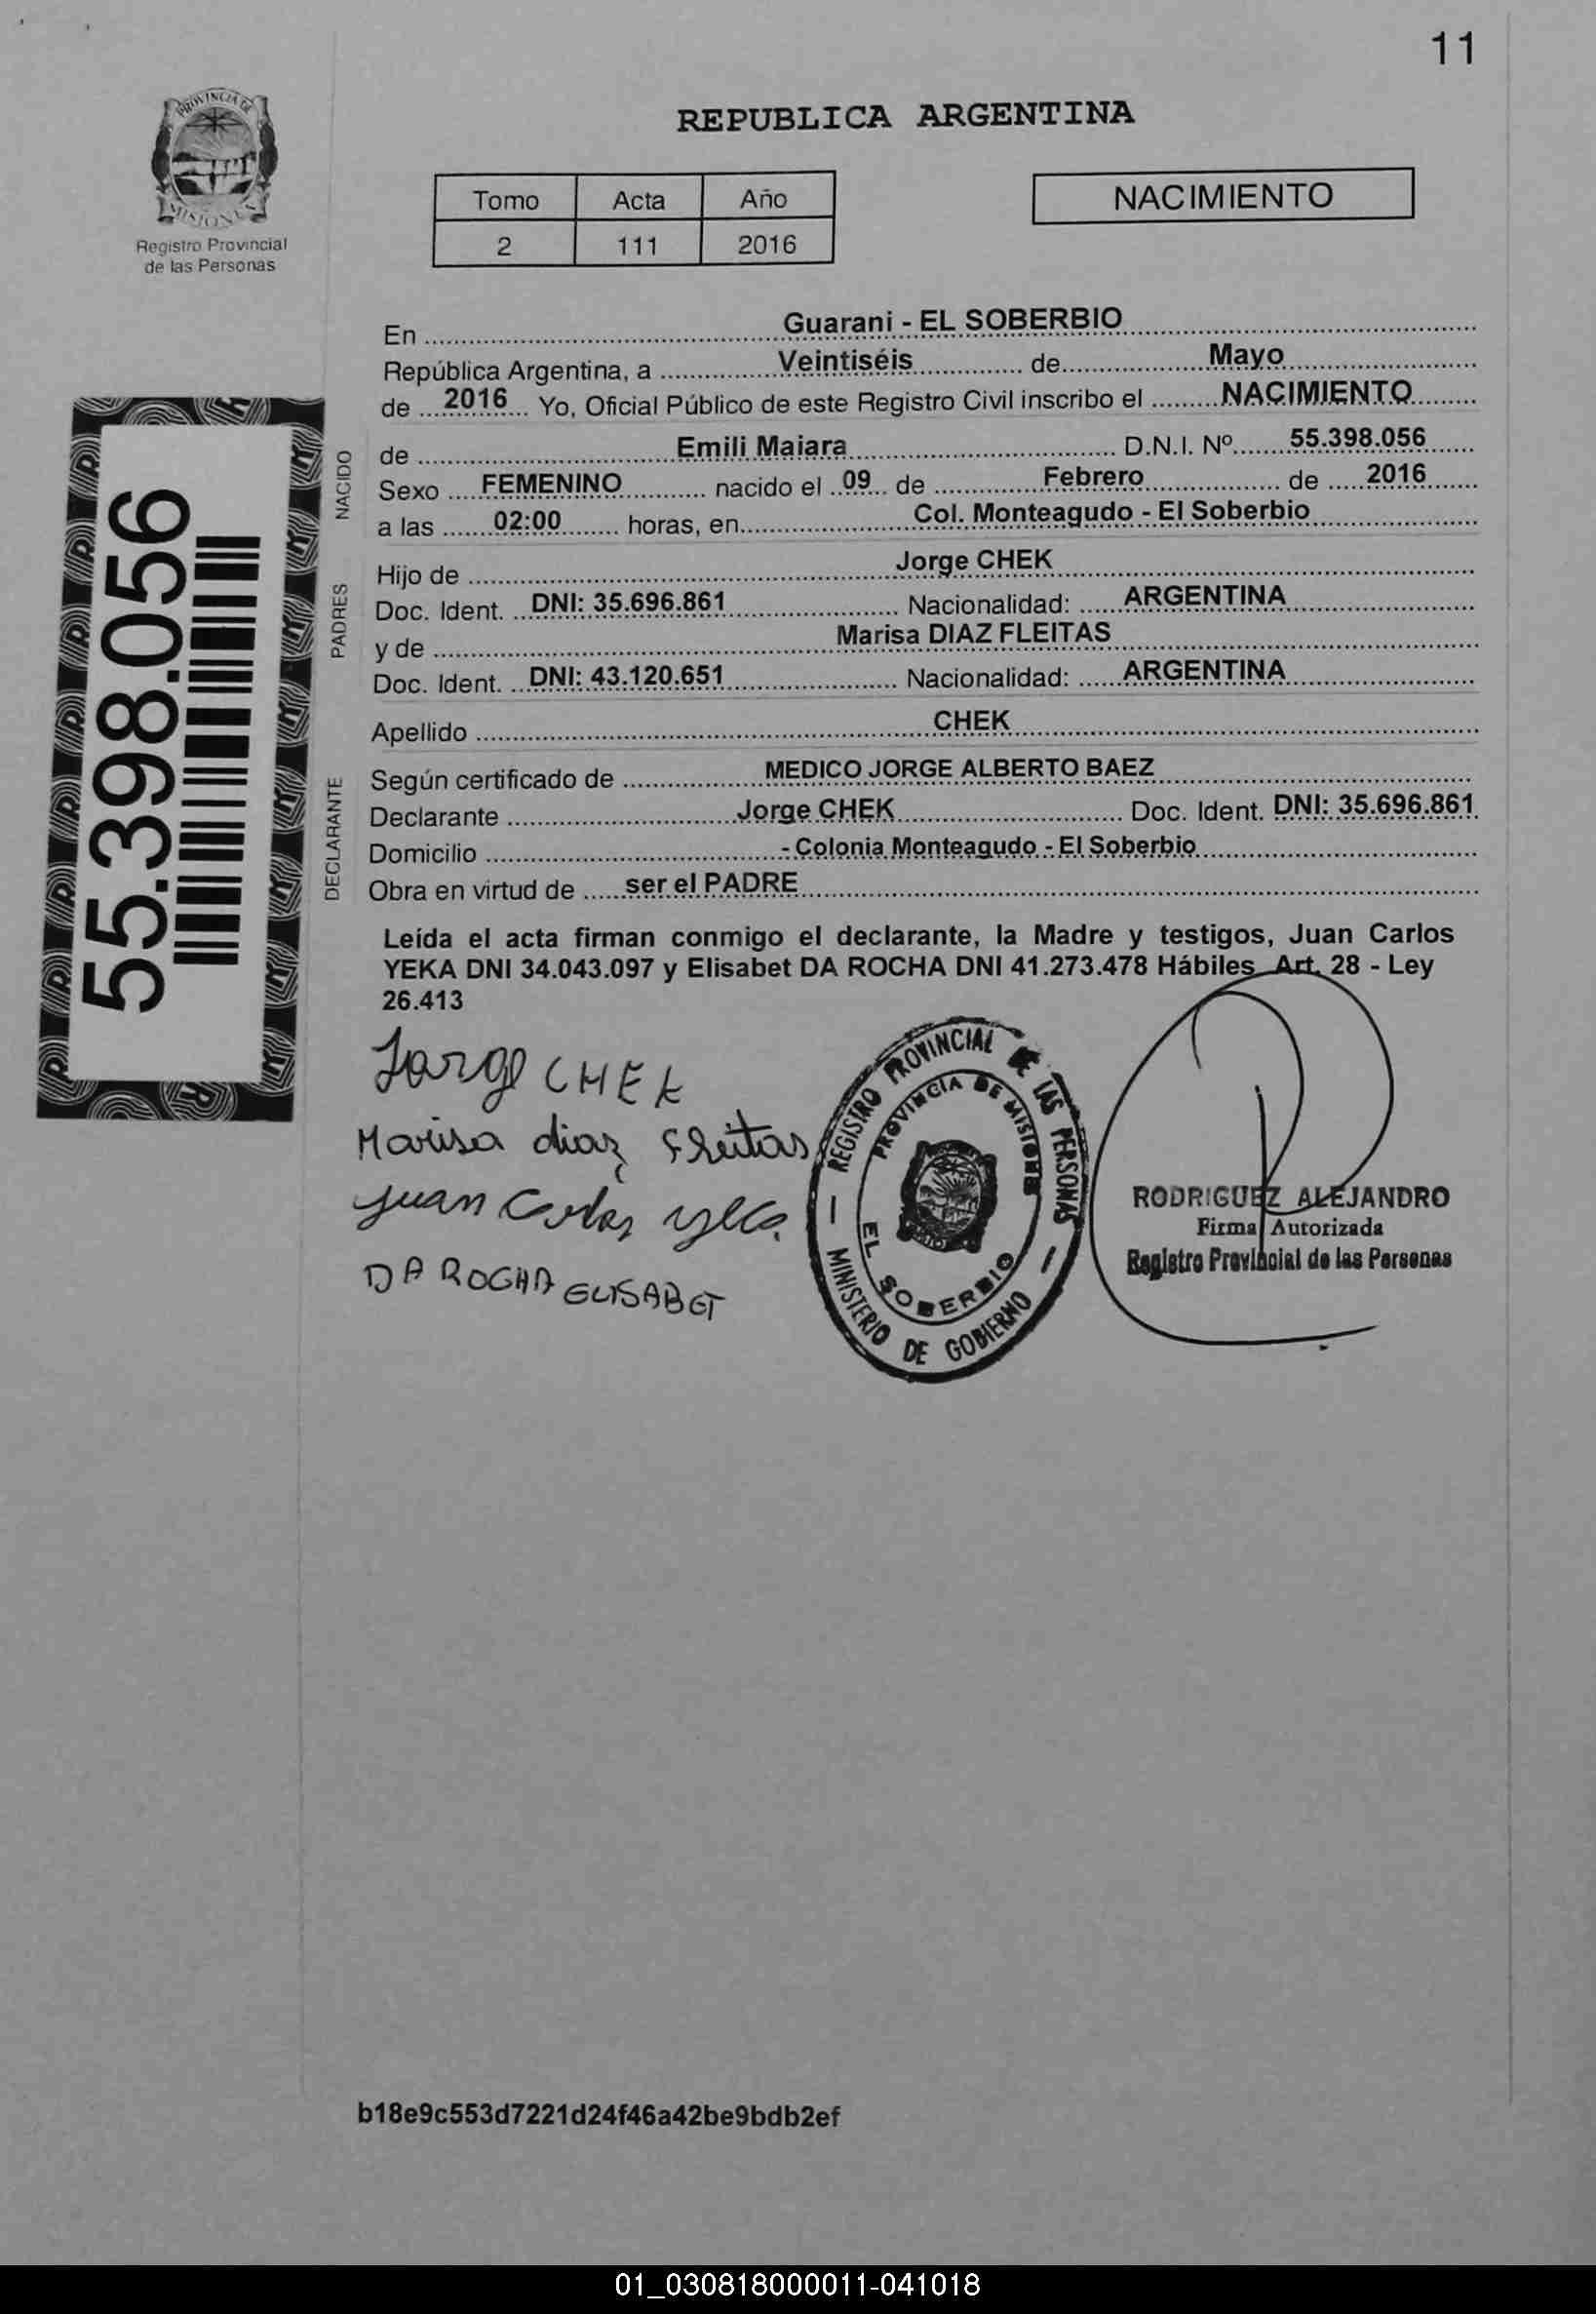 11
PROVINCIA DE
MISIONES
Registro Provincial
de las Personas
REPUBLICA ARGENTINA
Tomo Acta Año
2 111 2016
NACIMIENTO
En Guarani - EL SOBERBIO
República Argentina, a Veintiséis de Mayo
de 2016 Yo, Oficial Público de este Registro Civil inscribo el NACIMIENTO
NACIDO
de Emili Maiara D.N.I. Nº 55.398.056
Sexo FEMENINO nacido el 09 de Febrero de 2016
a las 02:00 horas, en Col. Monteagudo - El Soberbio
PADRES
Hijo de Jorge CHEK
Doc. Ident. DNI: 35.696.861 Nacionalidad: ARGENTINA
y de Marisa DIAZ FLEITAS
Doc. Ident. DNI: 43.120.651 Nacionalidad: ARGENTINA
Apellido CHEK
DECLARANTE
Según certificado de MEDICO JORGE ALBERTO BAEZ
Declarante Jorge CHEK Doc. Ident. DNI: 35.696.861
Domicilio - Colonia Monteagudo - El Soberbio
Obra en virtud de ser el PADRE
55.398.056
Leída el acta firman conmigo el declarante, la Madre y testigos, Juan Carlos
YEKA DNI 34.043.097 y Elisabet DA ROCHA DNI 41.273.478 Hábiles Art. 28 - Ley
26.413
Jorge CHEK
Marisa diaz fleitas
Juan Carlos yeka
DA ROCHA ELISABET
REGISTRO PROVINCIAL DE LAS PERSONAS
PROVINCIA DE MISIONES
EL SOBERBIO
MINISTERIO DE GOBIERNO
RODRIGUEZ ALEJANDRO
Firma Autorizada
Registro Provincial de las Personas
b18e9c553d7221d24f46a42be9bdb2ef
01_030818000011-041018